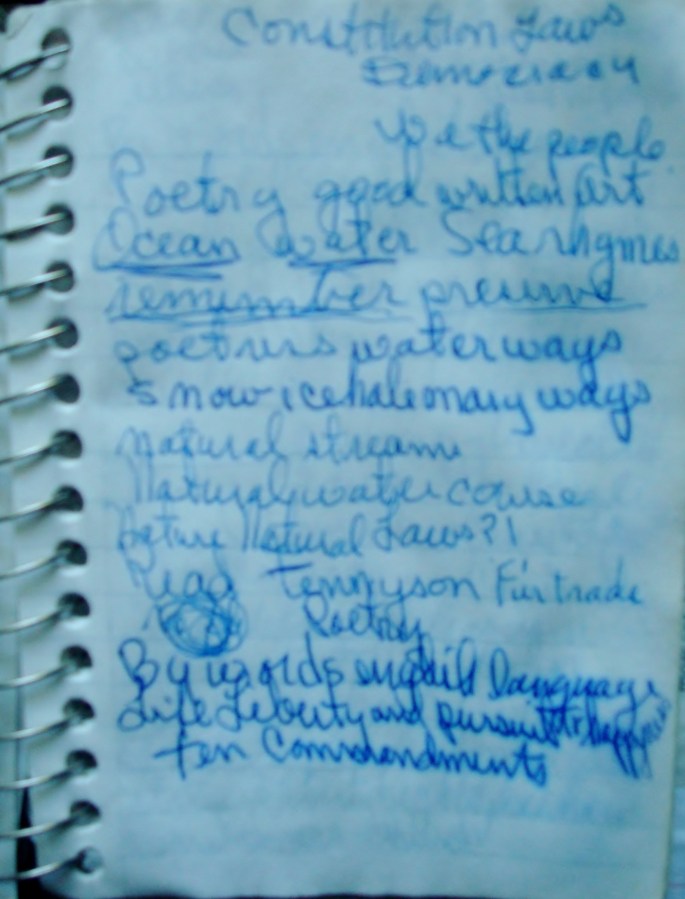 Constitution Laws
Democracy
We the people
Poetry good written Art
Ocean Water Sea rhymes
remember preserve
waterways
Snow ice ways
natural streams
Natural water course
Natural Laws?!
Read Tennyson Fur trade
Poetry
By words english language
Life Liberty and pursuit happyness
ten Commandments